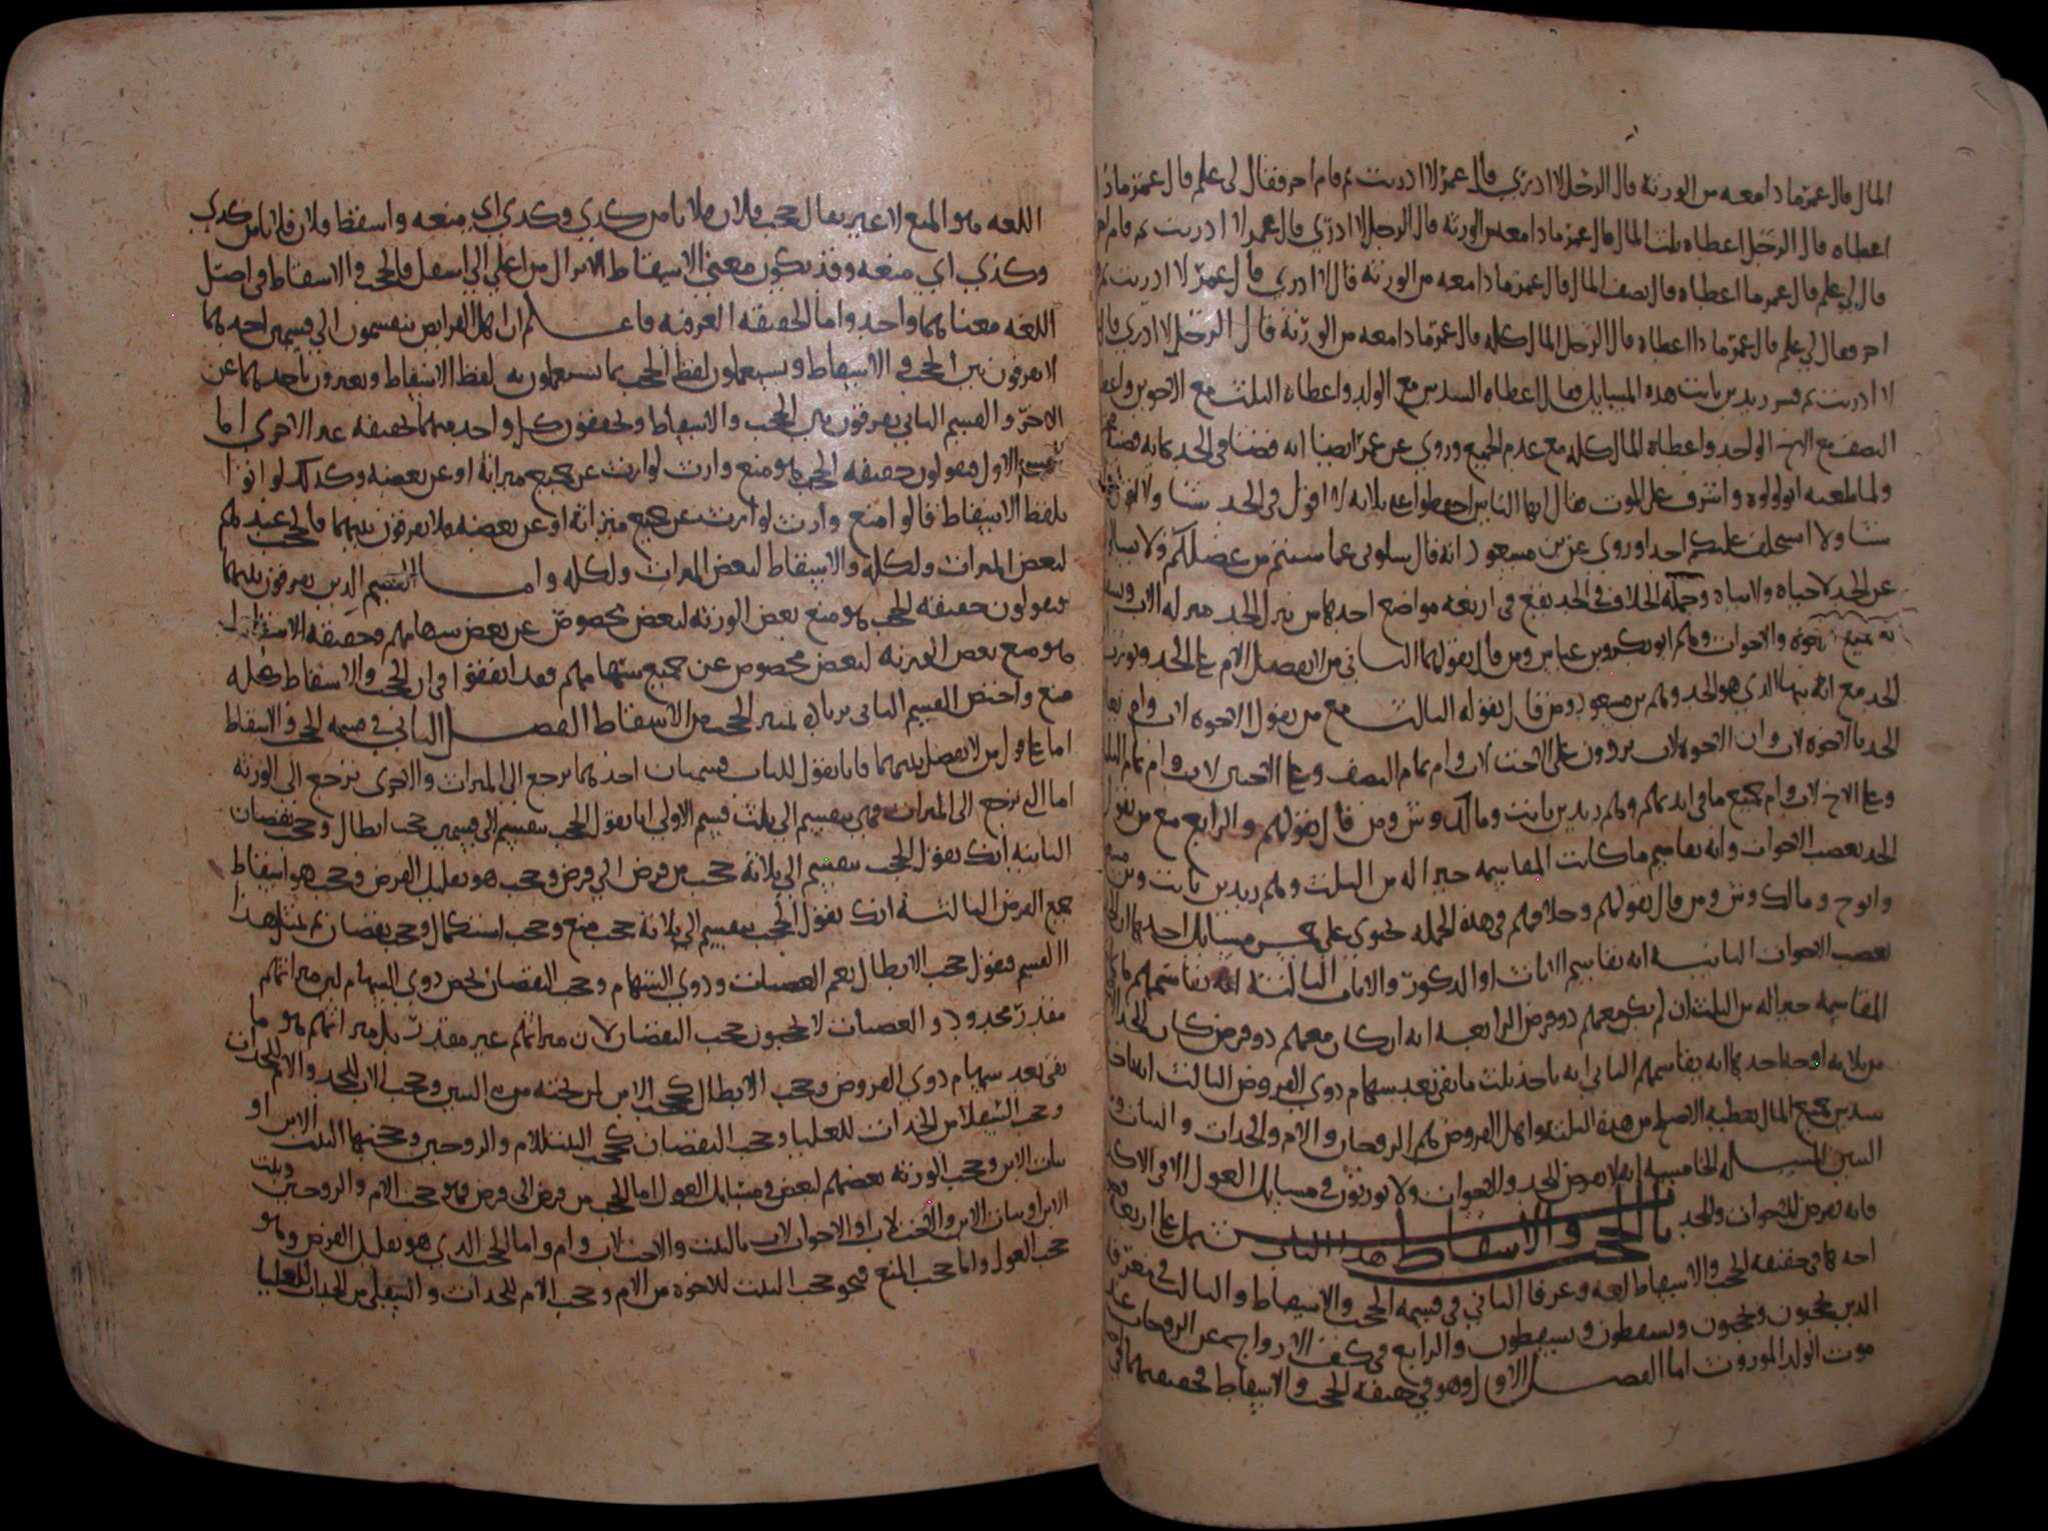 المال قال عمر ماذا معه من الورثة قال الرجل لا ادري قال عمر لا ادريت ثم قام اخر فقال لي علم قال عمر ماذا
اعطاه قال الرجل اعطاه ثلث المال قال عمر ماذا معه من الورثة قال الرجل لا ادري قال عمر لا ادريت ثم قام اخر
قال لي علم قال عمر ما اعطاه قال نصف المال قال عمر ماذا معه من الورثة قال لا ادري قال عمر لا ادريت ثم
اخر فقال لي علم قال عمر ماذا اعطاه قال الرجل المال كله قال عمر ماذا معه من الورثة قال الرجل لا ادري قال
لا ادريت ثم فسر زيد بن ثابت هذه المسايل فقال اعطاه السدس مع الولد واعطاه الثلث مع الاخوين واعطاه
النصف مع الاخ الواحد واعطاه المال كله مع عدم الجميع وروي عن عمر ايضا انه قضا في الجد بمائة قضية
ولما طعنه ابو لولوه واشرف على الموت قال ايها الناس احفظوا عني ثلاثة لا اقول في الجد شيا ولا اقول في
شيا ولا استخلف عليكم احدا وروي عن بن مسعود انه قال سلوني عما شئتم من عضلكم ولا تسالوني
عن الجد لا حياه ولا بياه وجملة الخلاف في الجد يقع في اربعة مواضع احدها من نزل الجد منزلة الاب
به جميع الاخوة والاخوات وهم ابو بكر وبن عباس ومن قال بقولهما الثاني من لا يفضل الام على الجد
الجد مع انه بينها الذي هو الجد وهم بن مسعود ومن قال بقوله الثالث مع من يقول الاخوه لاب وام
الجد بالاخوه لاب وان الاخوه لاب يردون على الاخت لاب وام تمام النصف وعلى الاختين لاب وام تمام الثلثين
وعلى الاخ لاب وام جميع ما في ايديهم وهم زيد بن ثابت ومالك وش ومن قال بقولهم والرابع مع من يقول
الجد يعصب الاخوات وانه يقاسم ما كانت المقاسمة خيرا له من الثلث وهم زيد بن ثابت
وابوح ومالك وش ومن قال بقولهم وخلافهم في هذه الجملة يحتوي على خمس مسايل احدها ان الجد
يعصب الاخوات الثانية انه يقاسم الاناث او الذكور والاناث الثالثة انه يقاسمهم ما كانت
المقاسمة خيرا له من الثلث ان لم يكن معهم ذو فرض الرابعة انه ان كان معهم ذو فرض كان للجد
من ثلاثة اوجه احدها انه يقاسمهم الثاني انه ياخذ ثلث ما بقي بعد سهام ذوي الفروض الثالث
سدس جميع المال يعطيه الاصلح من هذه الثلث واهل الفروض هم الزوجان والام والجدات والبنات
المسئلة الخامسة انه لا يفرض للجد والاخوات ولا يورثون في مسايل العول الا في الاكدرية
فانه يفرض للاخوات والجد باب الحجب والاسقاط هذا الباب يشتمل على اربعة
احدها في حقيقة الحجب والاسقاط لغة وعرفا الثاني في قسمة الحجب والاسقاط والثالث في معرفة
الذين يحجبون ويحجبون ويسقطون ويسقطون والرابع في كشف الازواج عن الزوجات عند
موت الولد الموروث اما الفصل الاول وهو في حقيقة الحجب والاسقاط فحقيقتهما في
اللغه هو المنع لا غير يقال حجب فلان فلانا من كدي وكدي اي منعه واسقط فلان فلانا من كدي
وكذي اي منعه وقد يكون معنى الاسقاط الانزال من اعلى الى اسفل فالحجب والاسقاط في اصل
اللغه معناهما واحد واما الحقيقه العرفيه فاعلم ان اهل الفرايض ينقسمون الى قسمين احدهما
لا يفرقون بين الحجب والاسقاط ويستعملون لفظ الحجب بما يستعملون به لفظ الاسقاط ويعبرون باحدهما عن
الاخر والقسم الثاني يفرقون بين الحجب والاسقاط ويحققون كل واحد منهما بحقيقه غير الاخرى اما
القسم الاول فيقولون حقيقة الحجب هو منع وارث لوارث عن جميع ميراثه او عن بعضه وكذلك لو اتوا
بلفظ الاسقاط قالوا منع وارث لوارث عن جميع ميراثه او عن بعضه فلا يفرقون بينهما فالحجب عندهم
لبعض الميراث ولكله والاسقاط لبعض الميراث ولكله واما القسم الذين يفرقون بينهما
فيقولون حقيقة الحجب هو منع بعض الورثه لبعض مخصوص عن بعض سهامهم وحقيقة الاسقاط
هو منع بعض الورثه لبعض مخصوص عن جميع سهامهم فقد اتفقوا في ان الحجب والاسقاط جملة
منع واختص القسم الثاني بزيادة تميز الحجب من الاسقاط الفصل الثاني في قسمة الحجب والاسقاط
اما على قول من لا يفصل بينهما فانا نقول للباب قسمان احدهما يرجع الى الميراث والاخرى ترجع الى الورثه
اما التي ترجع الى الميراث فهي تنقسم الى ثلث قسم الاولى انا نقول الحجب ينقسم الى قسمين حجب ابطال وحجب نقصان
الثانيه انك تقول الحجب ينقسم الى ثلاثة حجب من فرض الى فرض وحجب هو تقليل الفرض وحجب هو اسقاط
جميع الفرض الثالثة انك تقول الحجب ينقسم الى ثلاثة حجب منع وحجب استكمال وحجب نقصان ثم لمثل هذا
القسم فنقول حجب الابطال يعم العصبات وذوي السهام وحجب النقصان يخص ذوي السهام لان ميراثهم
مقدر محدود والعصبات لا يحجبون حجب النقصان لان ميراثهم غير مقدر بل ميراثهم هو ما
بقى بعد سهام ذوي الفروض وحجب الابطال كحجب الابن لمن تحته من البنين وحجب الاب للجد والام للجدات
وحجب السفلا من الجدات للعليا وحجب النقصان كحجب البنت للام والزوجين وحجبها البنت الابن او
بنات الابن وحجب الورثه بعضهم لبعض في مسايل العول اما الحجب من فرض الى فرض فهو حجب الام والزوجين وبنت
الابن او بنات الابن والاخت لاب او الاخوات لاب بالبنت والاخت لاب وام واما الحجب الذي هو تقليل الفرض وهو
حجب العول واما حجب المنع فنحو حجب البنت للاخوه من الام وحجب الام للجدات والسفلى من الجدات للعليا